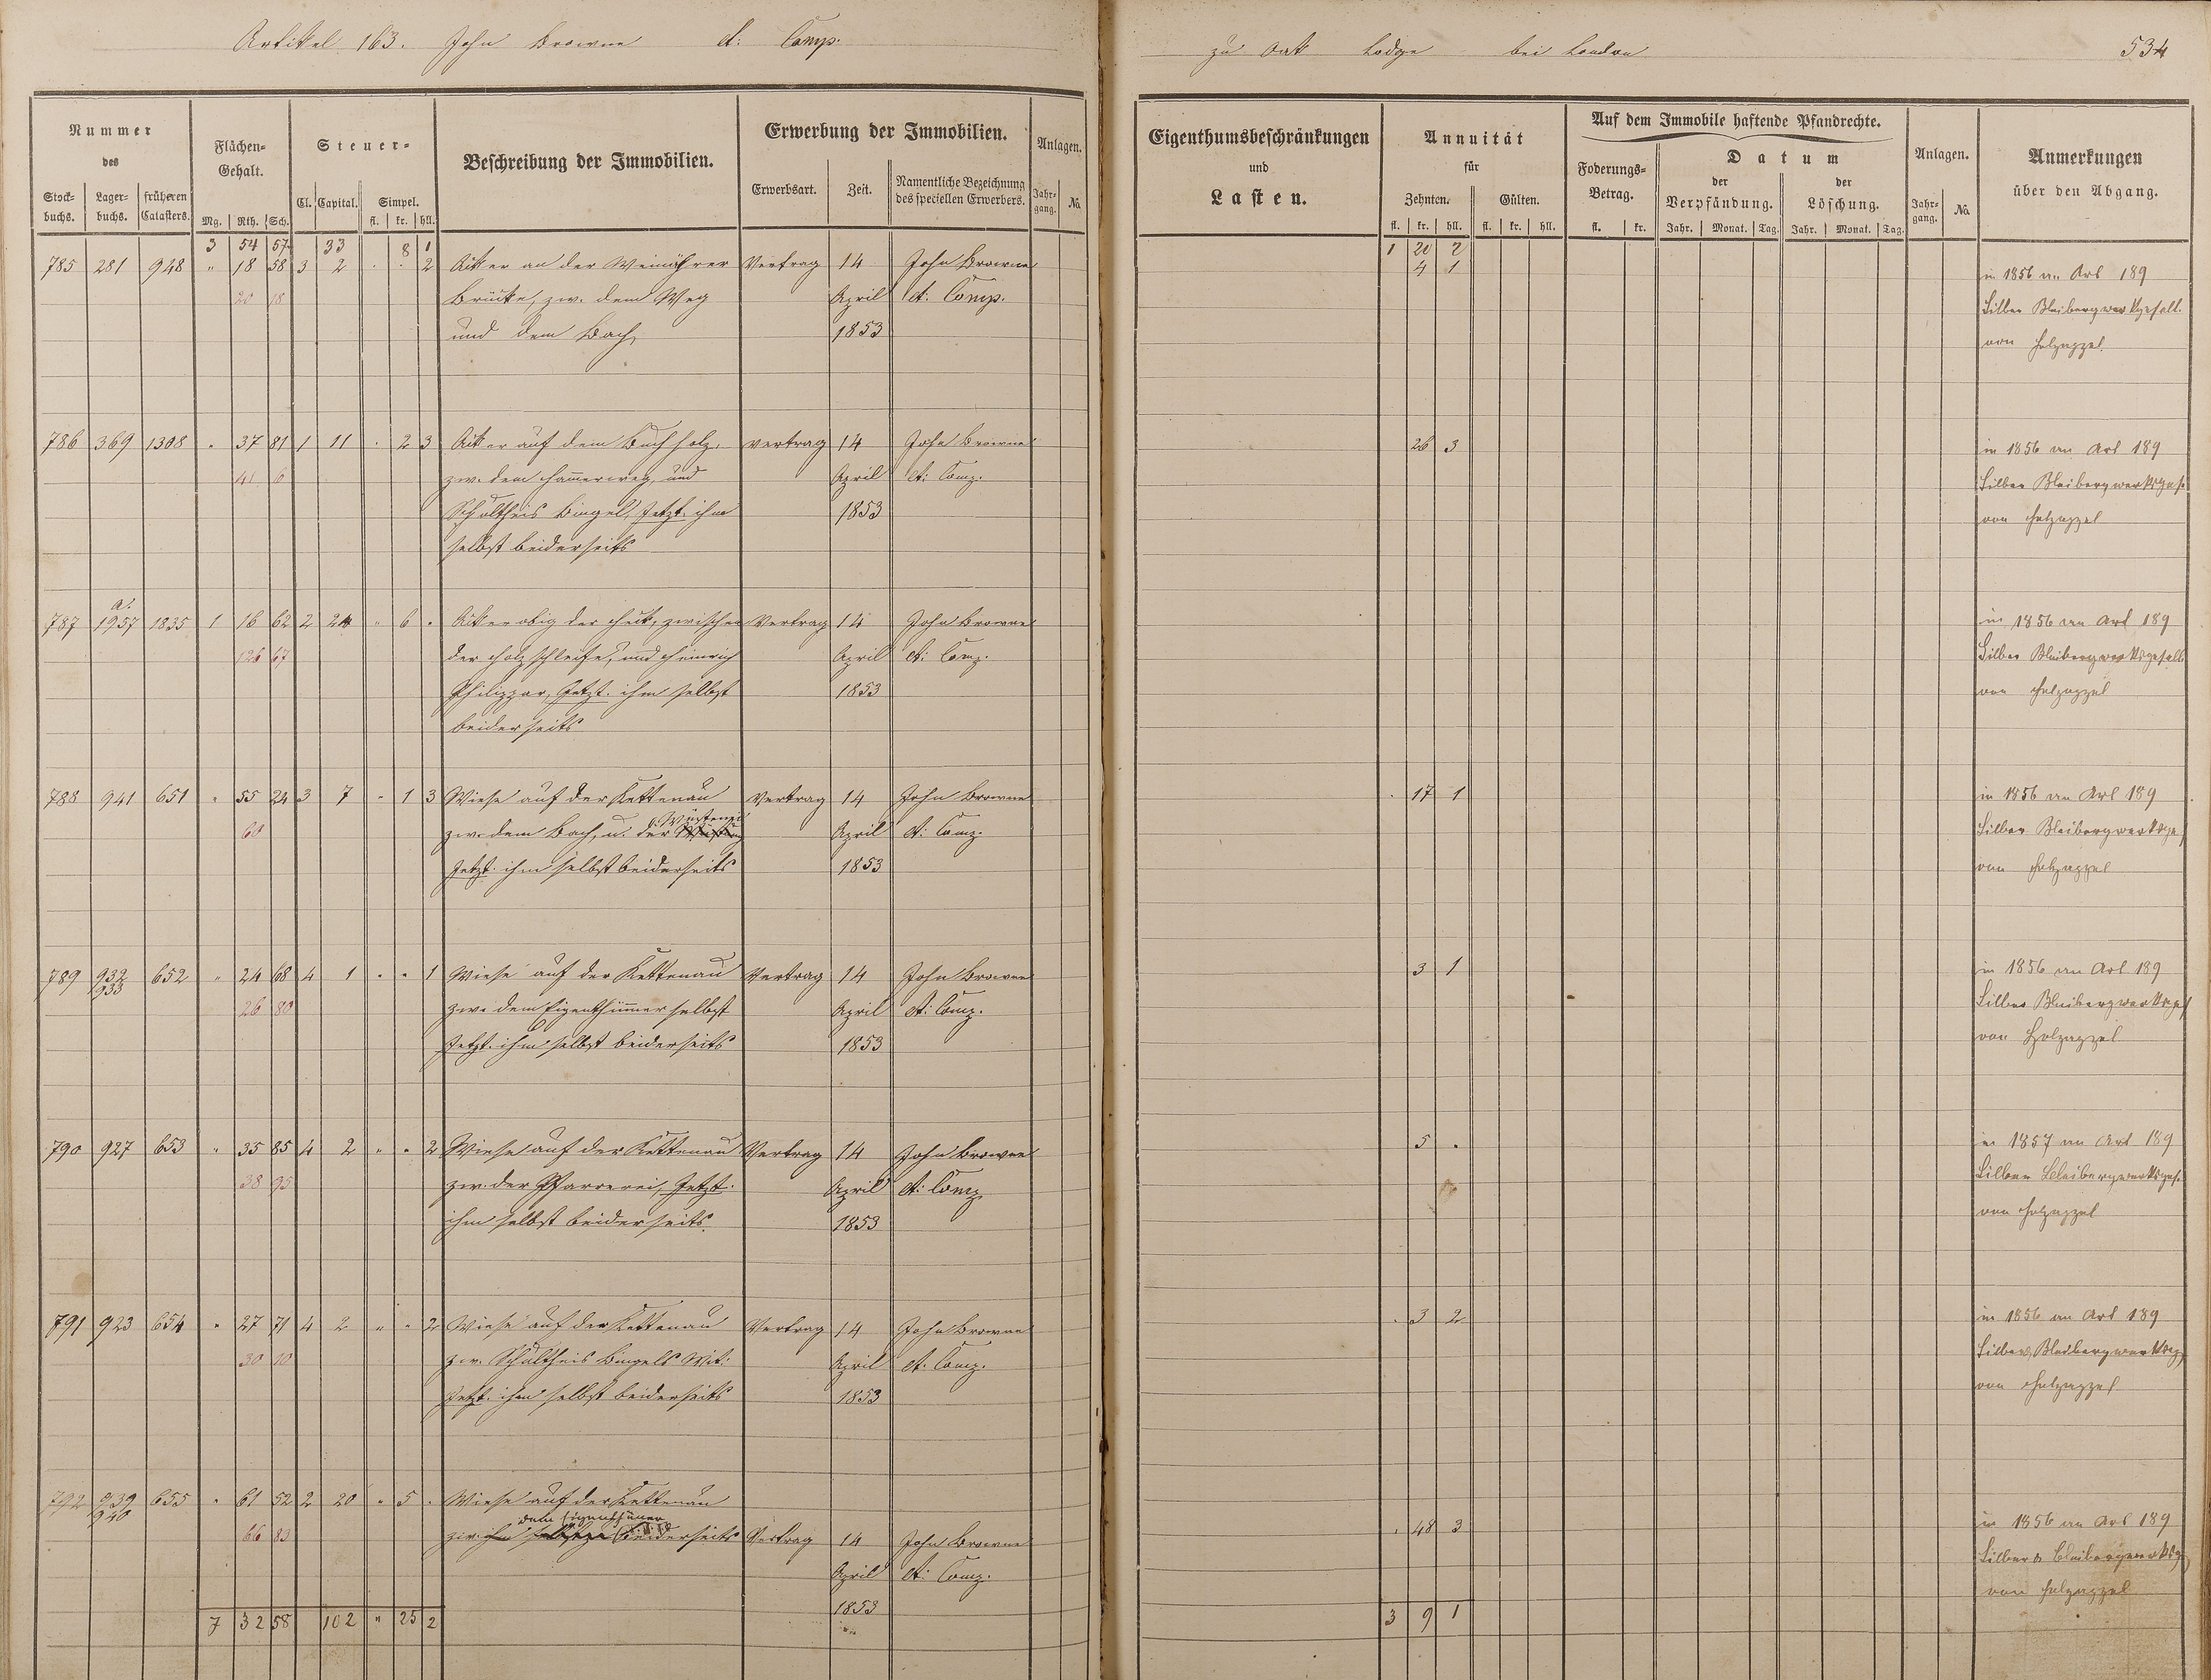 Artikel 163. John Browne et: Comp.
zu Oak Lodge bei London
534
Nummer des
Stockbuchs. Lagerbuchs. früheren Catasters.
Flächen-Gehalt.
Mg. Rth. Sch.
Steuer-
Cl. Capital. Simpel.
fl. kr. hll.
Beschreibung der Immobilien.
Erwerbung der Immobilien.
Erwerbsart. Zeit. Namentliche Bezeichnung des speciellen Erwerbers.
Anlagen.
Jahrgang. No.
Eigenthumsbeschränkungen
und
Lasten.
Annuität
für
Zehnten. Gülten.
fl. kr. hll. fl. kr. hll.
Auf dem Immobile haftende Pfandrechte.
Foderungs-Betrag.
fl. kr.
Datum
der Verpfändung. der Löschung.
Jahr. Monat. Tag. Jahr. Monat. Tag.
Anlagen.
Jahrgang. No.
Anmerkungen
über den Abgang.
3 54 57 33 8 1 1 20 2
785 281 948 " 18 58 3 2 . . 2 Acker an der Weinährer Vertrag 14 John Browne 4 1 in 1856 an Art 189
20 18 Brücke, zw. dem Weg April et: Comp. Silber Bleibergwerksgesell.
und dem Bach 1853 von Holzappel
786 369 1308 . 37 81 1 11 . 2 3 Acker auf dem Buchholz, Vertrag 14 John Browne 26 3 in 1856 an Art 189
41 6 zw. dem Hamerweg, und April et: Comp. Silber Bleibergwerksges.
Schultheis Bingel, Jetzt: ihm 1853 von Holzappel
selbst beiderseits
787 a. 1957 1835 1 16 62 2 24 " 6 . Acker obig der Heck, zwischen Vertrag 14 John Browne in 1856 an Art 189
126 67 der Holzschleife, und Heinrich April et: Comp. Silber Bleibergwerksgesell.
Philippar, Jetzt: ihm selbst 1853 von Holzappel
beiderseits
788 941 651 . 55 24 3 7 . 1 3 Wiese auf der Kettenau Vertrag 14 John Browne . 17 1 in 1856 an Art 189
60 zw. dem Bach, u. der Wüstenei April et: Comp. Silber Bleibergwerksge
Jetzt: ihm selbst beiderseits 1853 von Holzappel
789 932 933 652 " 24 68 4 1 . . 1 Wiese auf der Kettenau Vertrag 14 John Browne 3 1 in 1856 an Art 189
26 80 zw. dem Eigenthümer selbst April et: Comp. Silber Bleibergwerksges
Jetzt: ihm selbst beiderseits 1853 von Holzappel
790 927 653 . 35 85 4 2 " . 2 Wiese auf der Kettenau Vertrag 14 John Browne 5 . in 1857 an Art 189
38 95 zw. der Pfarrerei, Jetzt: April et: Comp Silber Bleibergwerksges.
ihm selbst beiderseits. 1853 von Holzappel
791 923 654 . 27 71 4 2 " . 2 Wiese auf der Kettenau Vertrag 14 John Browne . 3 2 in 1856 an Art 189
30 10 zw. Schultheis Bingels Wit: April et: Comp. Silber Bleibergwerksg
Jetzt: ihm selbst beiderseits 1853 von Holzappel
792 939 940 655 . 61 52 2 20 " 5 . Wiese auf der Kettenau
dem Eigenthümer
66 83 zw. ihm selbst beiderseits Vertrag 14 John Browne . 48 3 in 1856 an Art 189
April et: Comp. Silber & Bleibergwerksg
1853 von Holzappel
7 32 58 102 " 25 2 3 9 1